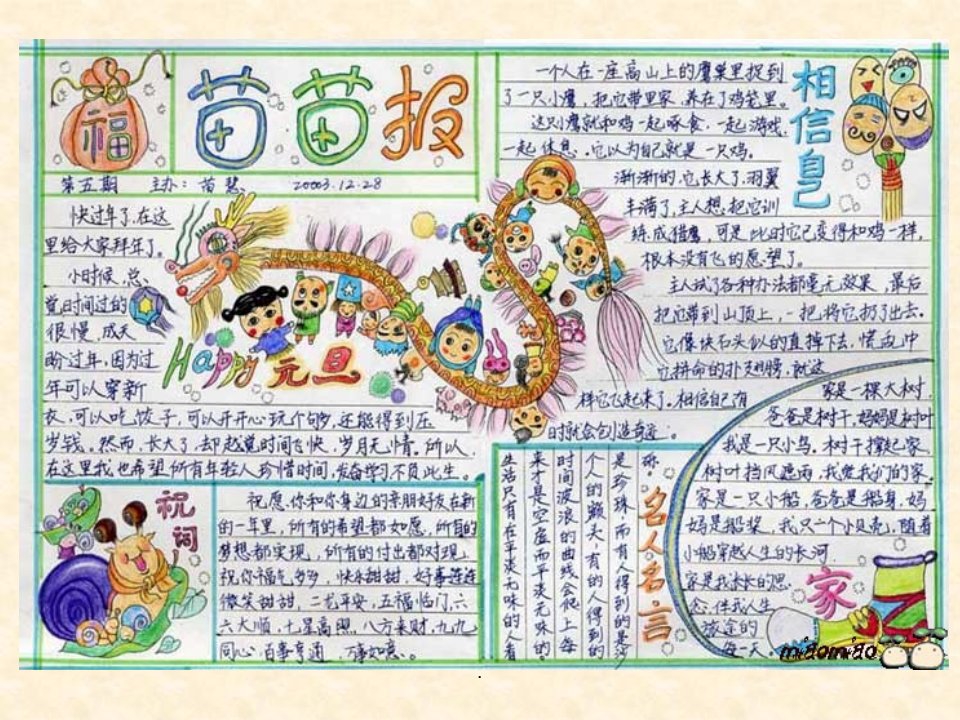 福
苗苗报
第五期 主办：苗慧 20003.12.28
快过年了，在这
里给大家拜年了。
小时候，总
觉时间过的
很慢，成天
盼过年，因为过
年可以穿新
衣，可以吃饺子，可以开开心玩个够，还能得到压
岁钱。然而，长大了，却越觉时间飞快，岁月无情。所以
在这里我也希望所有年轻人珍惜时间，发奋学习不负此生。
Happy 元旦
相信自己
一个人在一座高山上的鹰巢里捉到
了一只小鹰，把它带里家，养在了鸡笼里。
这只小鹰就和鸡一起啄食，一起游戏，
一起休息。它以为自己就是一只鸡。
渐渐的，它长大了，羽翼
丰满了，主人想把它训
练成猎鹰，可是此时它已变得和鸡一样，
根本没有飞的愿望了。
主人试了各种办法都毫无效果，最后
把它带到山顶上，一把将它扔了出去。
它像块石头似的直掉下去，慌乱中
它拼命的扑翅膀，就这
样它飞起来了。相信自己有
时就会创造奇迹。
祝词
祝愿你和你身边的亲朋好友在新
的一年里，所有的希望都如愿，所有的
梦想都实现，所有的付出都对现，
祝你福气多多，快乐甜甜，好事连连
微笑甜甜，二龙平安，五福临门，六
六大顺，七星高照，八方来财，九九
同心，百事亨通，万事如意。
名人名言
是珍珠，而有人得到的是沙
个人的额头，有的人得到的
时间波浪的曲线会爬上每
来才是空虚而平淡无味的。
生活只有在平淡无味的人看
家
家是一棵大树，
爸爸是树干，妈妈是树叶
我是一只小鸟，树干撑起家，
树叶挡风遮雨，我爱我们的家。
家是一只小船，爸爸是船身，妈
妈是船桨，我只一个小贝壳，随着
小船穿越人生的长河，
家是我浓浓的思
念，伴我人生
旅途的
每一天。
miaomiao